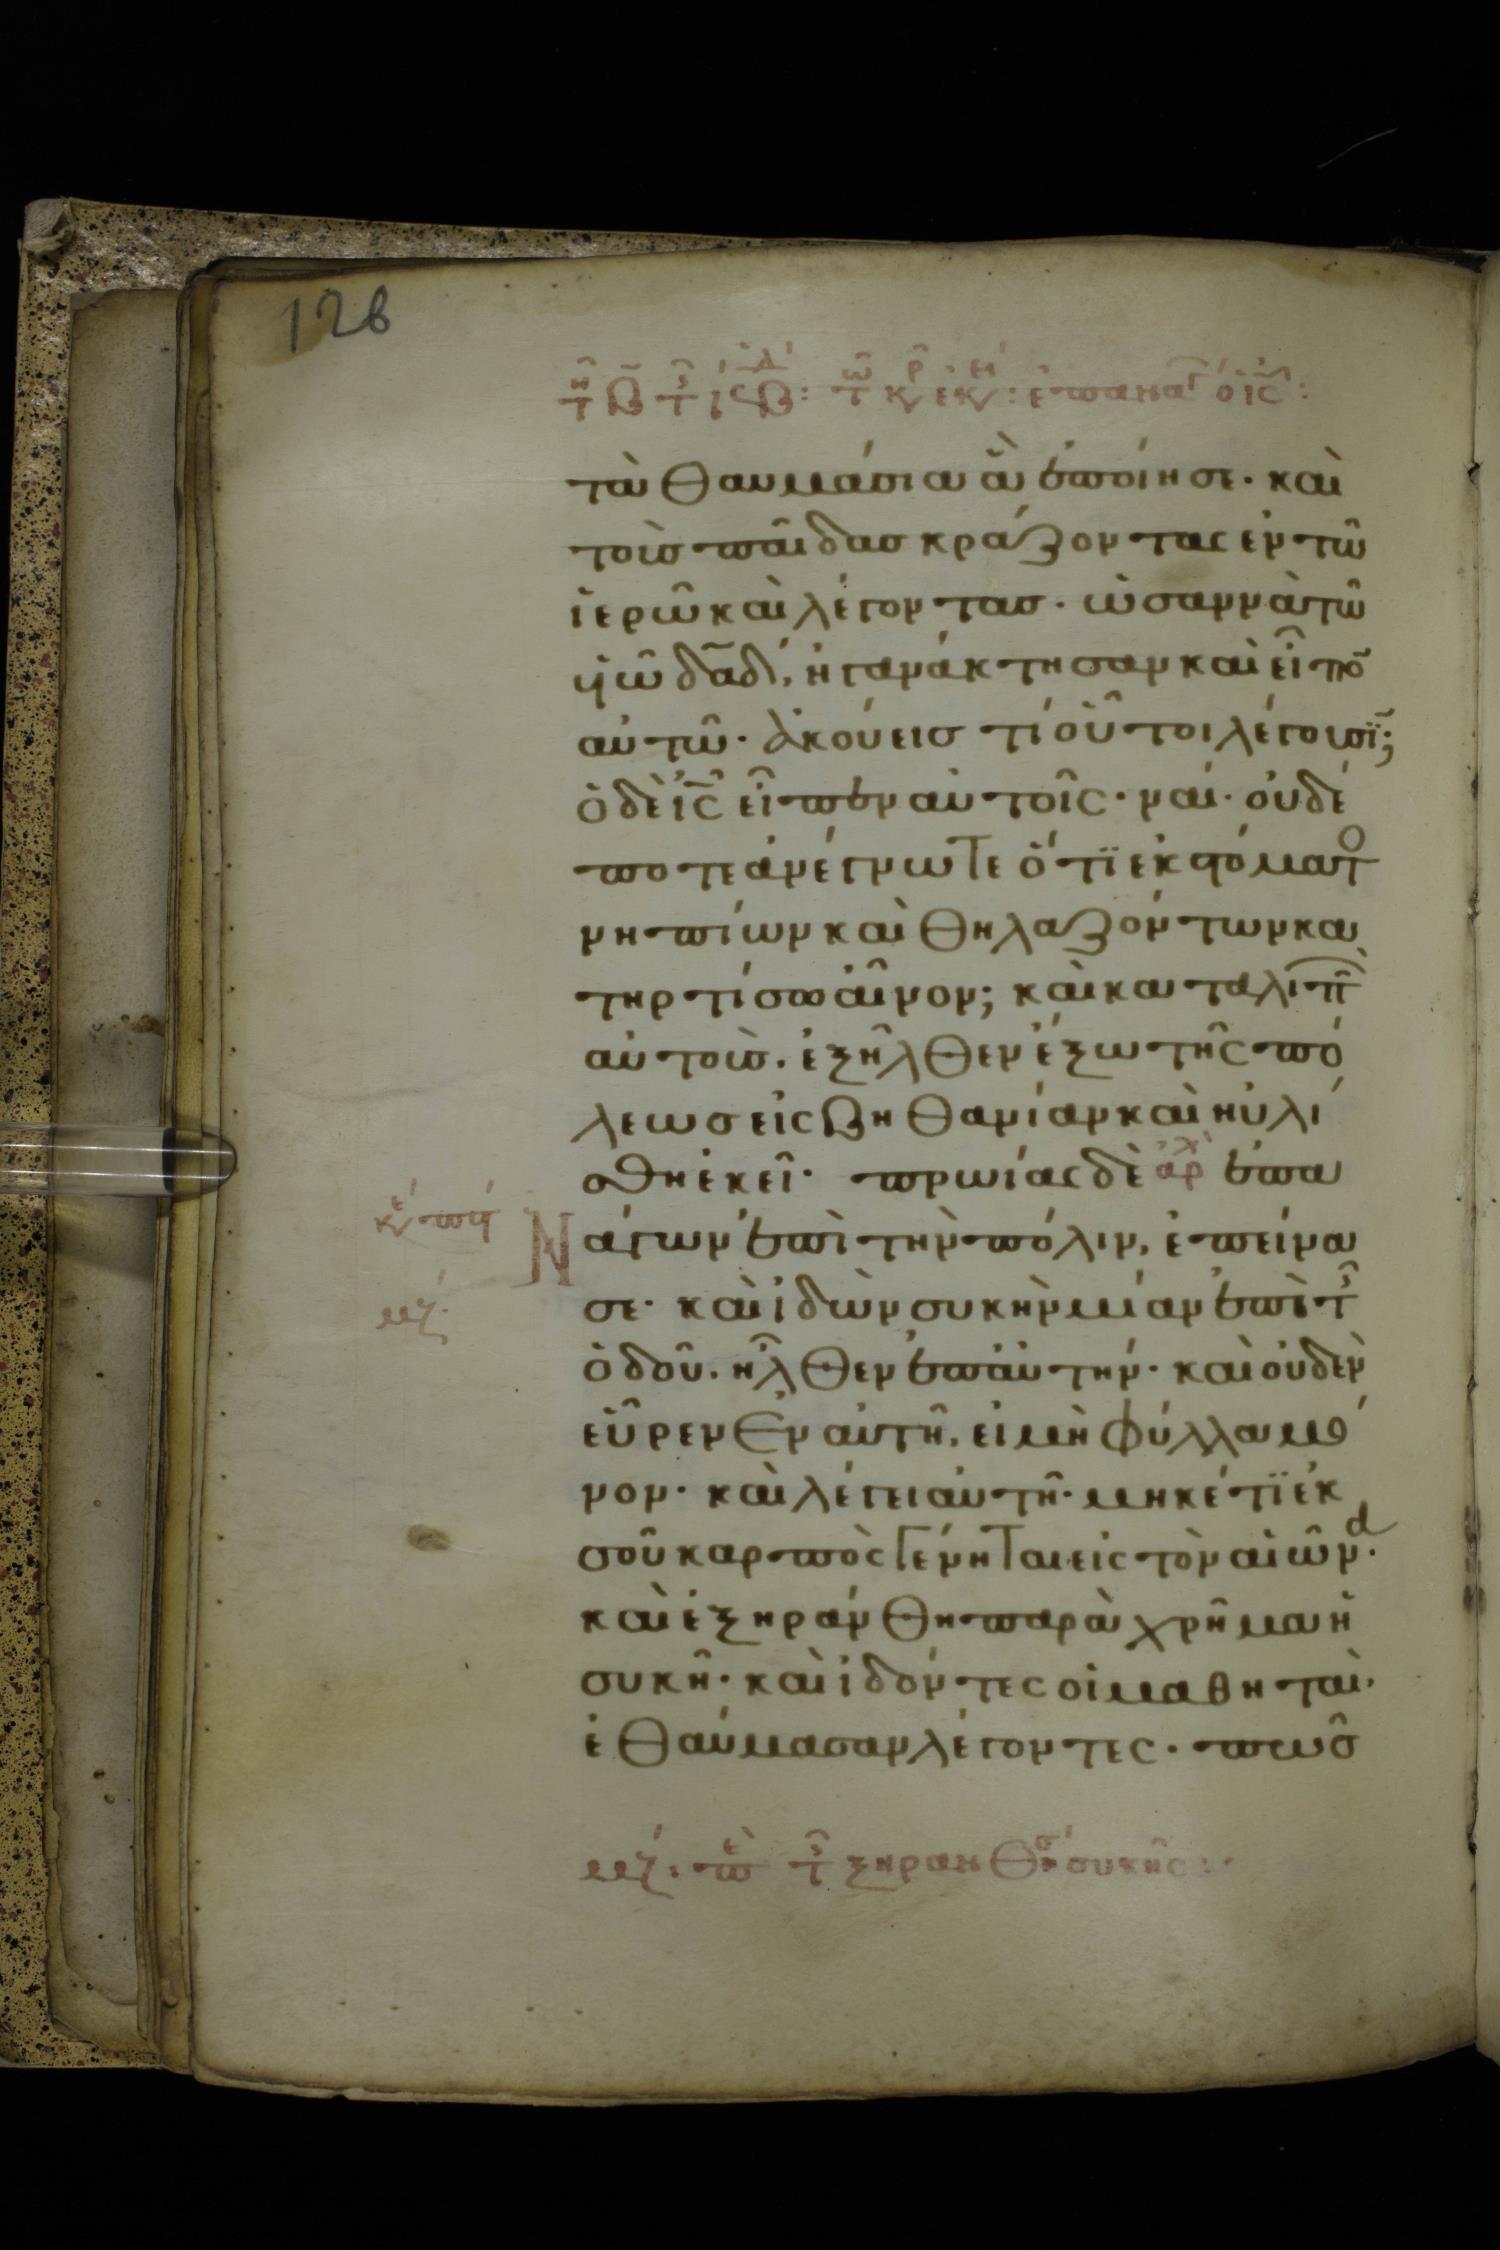 126
τὰ θαυμάσια ἃ ἐποίησε· καὶ
τοὺς παῖδας κράζοντας ἐν τῶ
ἱερῶ καὶ λέγοντας· ὡσαννὰ τῶ
υἱῶ δᾱδ, ἠγανάκτησαν καὶ εἶπο
αὐτῶ· ἀκούεις τί οὗτοι λέγουσϊ;
ὁ δὲ ι̅ς̅ εἶπεν αὐτοῖς· ναί· οὐδέ
ποτε ἀνέγνωτε ὅτϊ ἐκ στόματο
νηπίων καὶ θηλαζόντων κα
τηρτίσω αἶνον; καὶ καταλιπὼ
αὐτοὺς, ἐξῆλθεν ἔξω τῆς πό
λεως εἰς βηθανίαν καὶ ηὐλί
σθη ἐκεῖ· πρωίας δὲ ἀρχ ἐπα
κε πη
Νάγων ἐπὶ τὴν πόλιν, ἐπείνα
μζ
σε· καὶ ἰδὼν συκὴν μίαν ἐπὶ τ
ὁδοῦ, ἦλθεν ἐπ αὐτήν· καὶ οὐδὲν
εὗρεν ἐν αὐτῆ, εἰ μὴ φύλλα μό
νον· καὶ λέγει αὐτῆ· μηκέτϊ ἐκ
σοῦ καρπὸς γένηται εἰς τὸν αἰῶνα·
καὶ ἐξηράνθη παραχρῆμα ἡ
συκῆ· καὶ ἰδόντες οἱ μαθηταὶ,
ἐθαύμασαν λέγοντες· πῶς
μζ· πε τ ξηρανθ συκῆς: